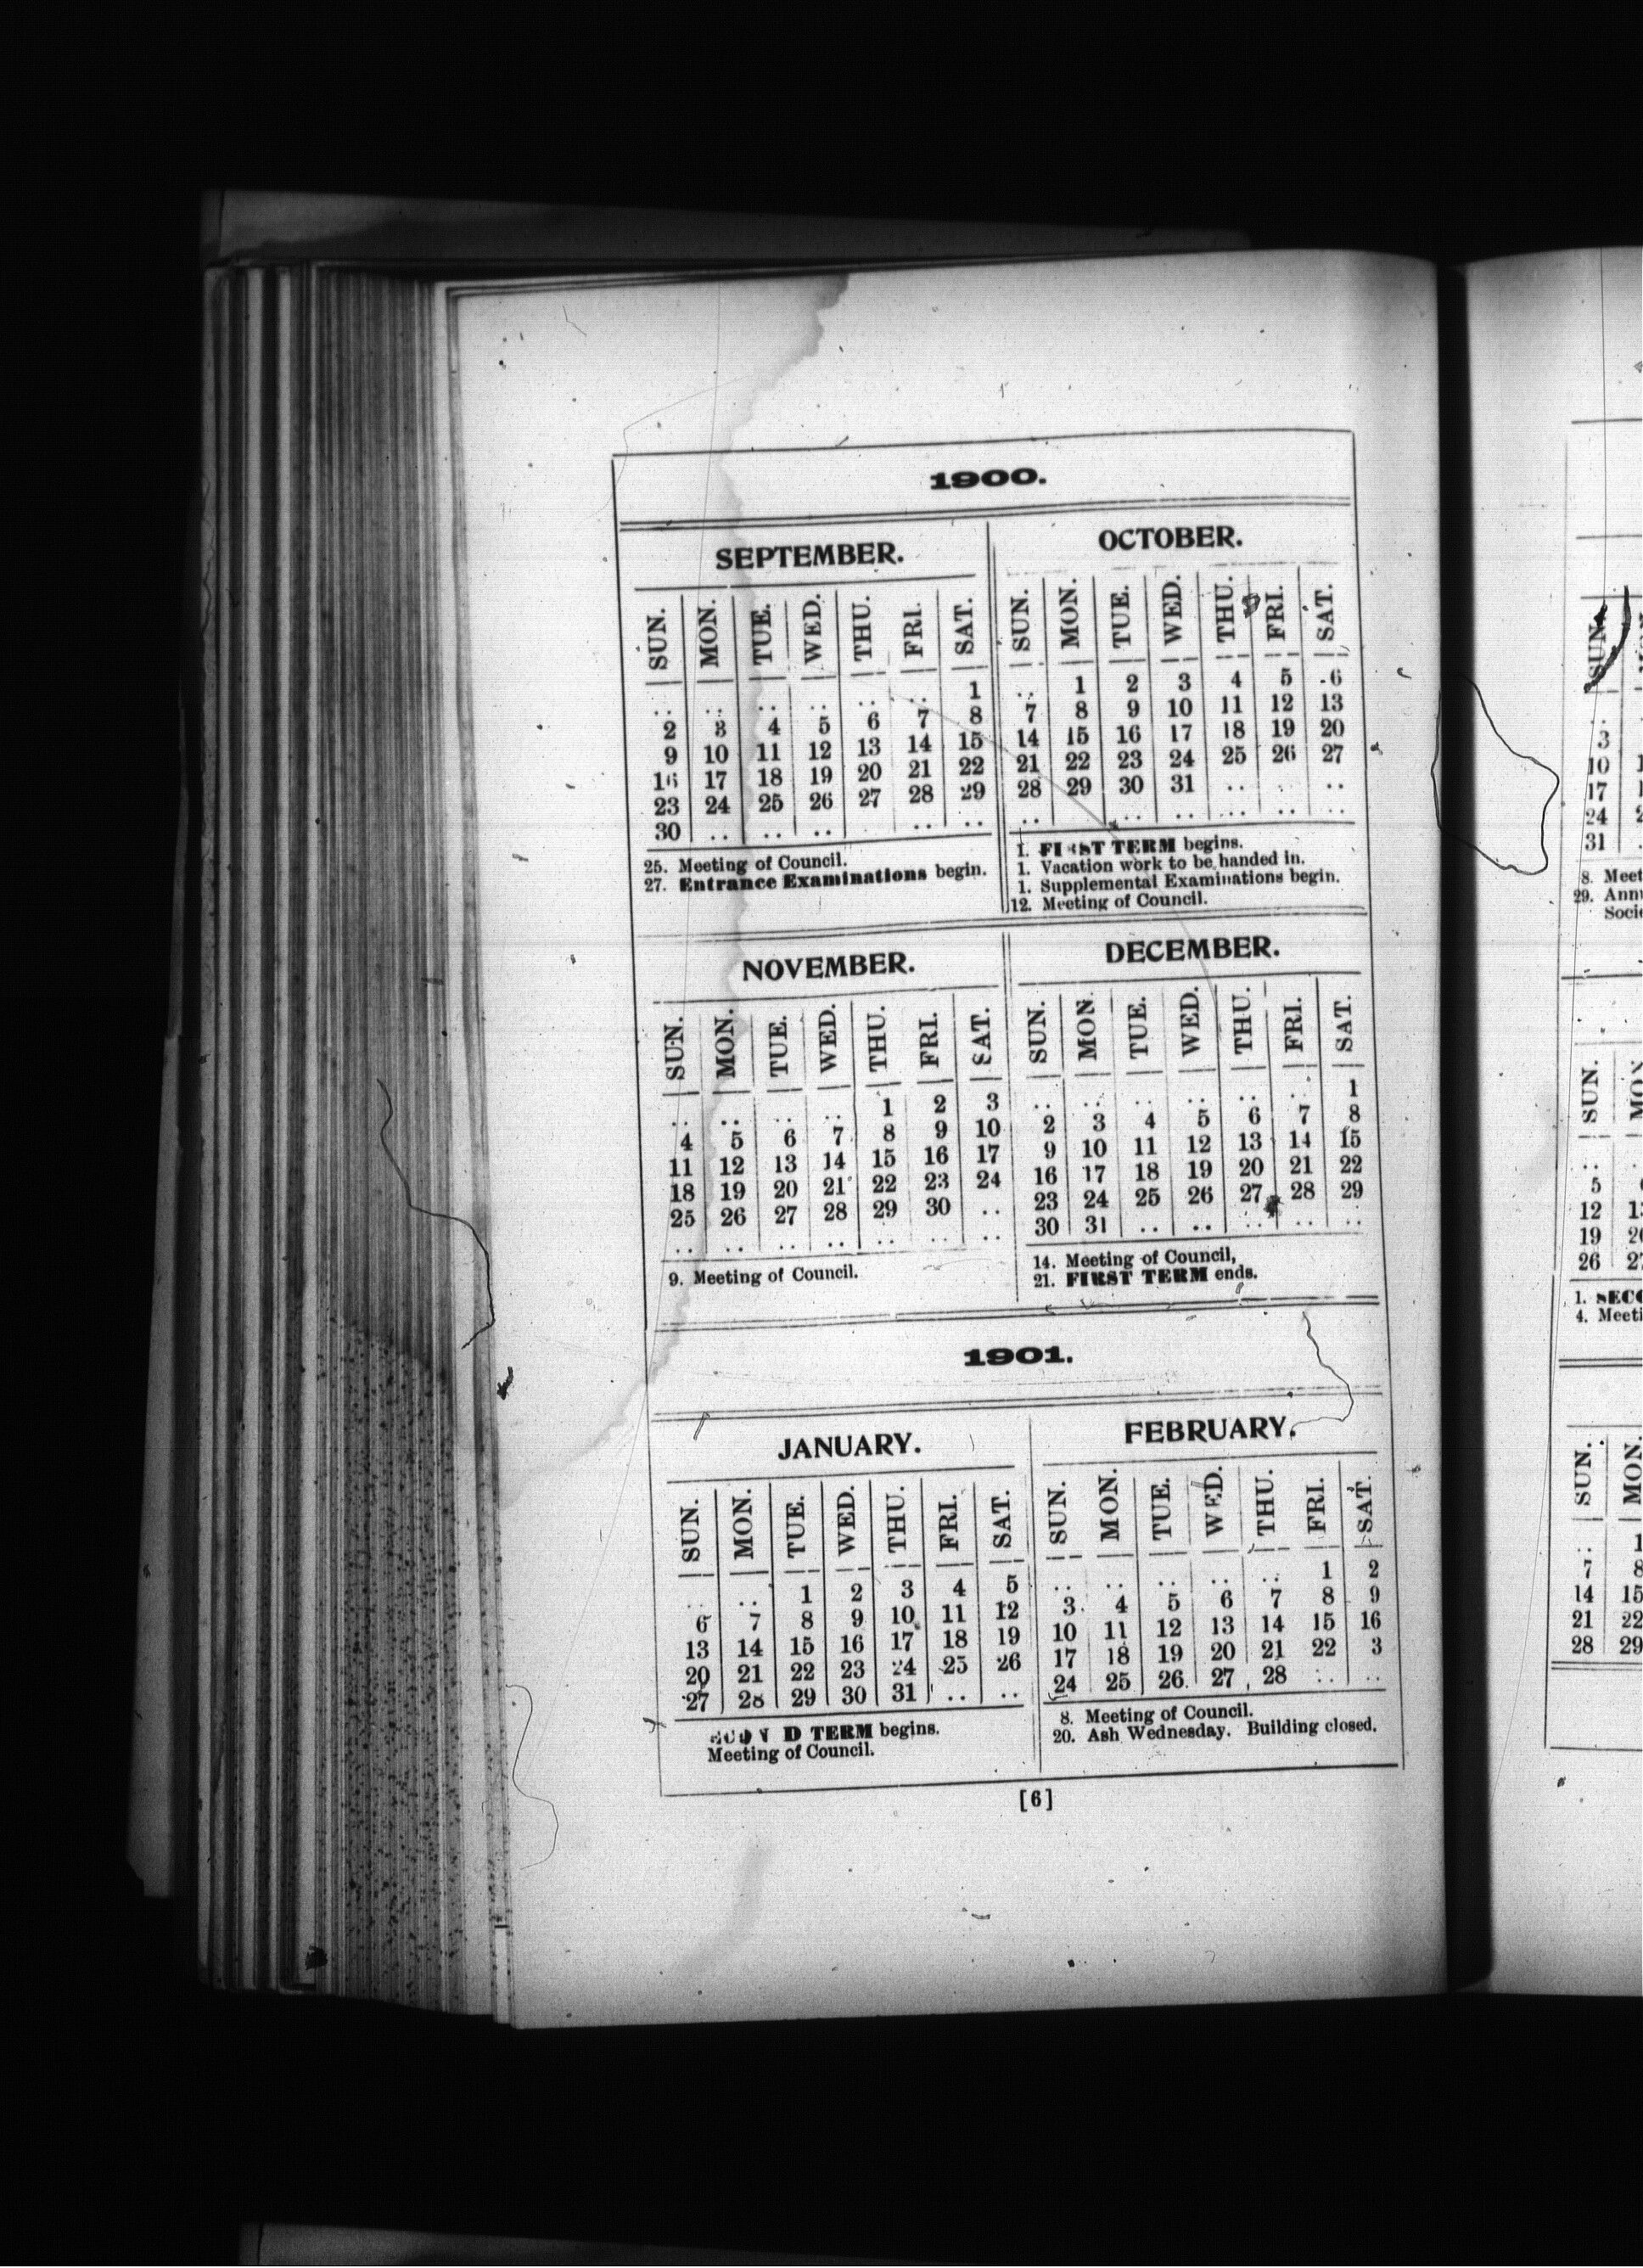 1900.
SEPTEMBER.
SUN. MON. TUE. WED. THU. FRI. SAT.
.. .. .. .. .. .. 1
2 3 4 5 6 7 8
9 10 11 12 13 14 15
16 17 18 19 20 21 22
23 24 25 26 27 28 29
30 .. .. .. .. ..
25. Meeting of Council.
27. Entrance Examinations begin.
OCTOBER.
SUN. MON. TUE. WED. THU. FRI. SAT.
.. 1 2 3 4 5 6
7 8 9 10 11 12 13
14 15 16 17 18 19 20
21 22 23 24 25 26 27
28 29 30 31 .. .. ..
.. .. .. .. .. ..
1. FIRST TERM begins.
1. Vacation work to be handed in.
1. Supplemental Examinations begin.
12. Meeting of Council.
NOVEMBER.
SUN. MON. TUE. WED. THU. FRI. SAT.
.. .. .. .. 1 2 3
4 5 6 7 8 9 10
11 12 13 14 15 16 17
18 19 20 21 22 23 24
25 26 27 28 29 30 ..
.. .. .. .. .. .. ..
9. Meeting of Council.
DECEMBER.
SUN. MON. TUE. WED. THU. FRI. SAT.
.. .. .. .. .. .. 1
2 3 4 5 6 7 8
9 10 11 12 13 14 15
16 17 18 19 20 21 22
23 24 25 26 27 28 29
30 31 .. .. .. .. ..
14. Meeting of Council,
21. FIRST TERM ends.
1901.
JANUARY.
SUN. MON. TUE. WED. THU. FRI. SAT.
.. .. 1 2 3 4 5
6 7 8 9 10 11 12
13 14 15 16 17 18 19
20 21 22 23 24 25 26
27 28 29 30 31 .. ..
TERM begins.
Meeting of Council.
FEBRUARY.
SUN. MON. TUE. WED. THU. FRI. SAT.
.. .. .. .. .. 1 2
3 4 5 6 7 8 9
10 11 12 13 14 15 16
17 18 19 20 21 22 3
24 25 26 27 28 .. ..
8. Meeting of Council.
20. Ash Wednesday. Building closed.
[6]
SUN.
..
3
10
17
24
31
8. Meet
29.
SUN.
..
5
12
19
26
1.
4. Meeti
SUN. MON.
.. 1
7 8
14 15
21 22
28 29